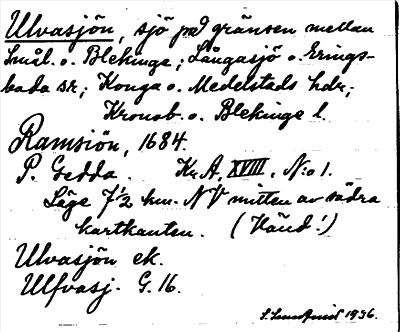 Ulvasjön, sjö på gränsen mellan
Smål. o. Blekinge; Långasjö o. Erings-
boda sn; Konga o. Medelstads hdr;
Kronob. o. Blekinge l.
Ramsiön, 1684.
P. Gedda. Kr.A, XVIII, N:o 1.
Läge 7½ km. NV mitten av södra
kartkanten. (Vänd!)
Ulvasjön ek.
Ulfvasj. G. 16.
1936.